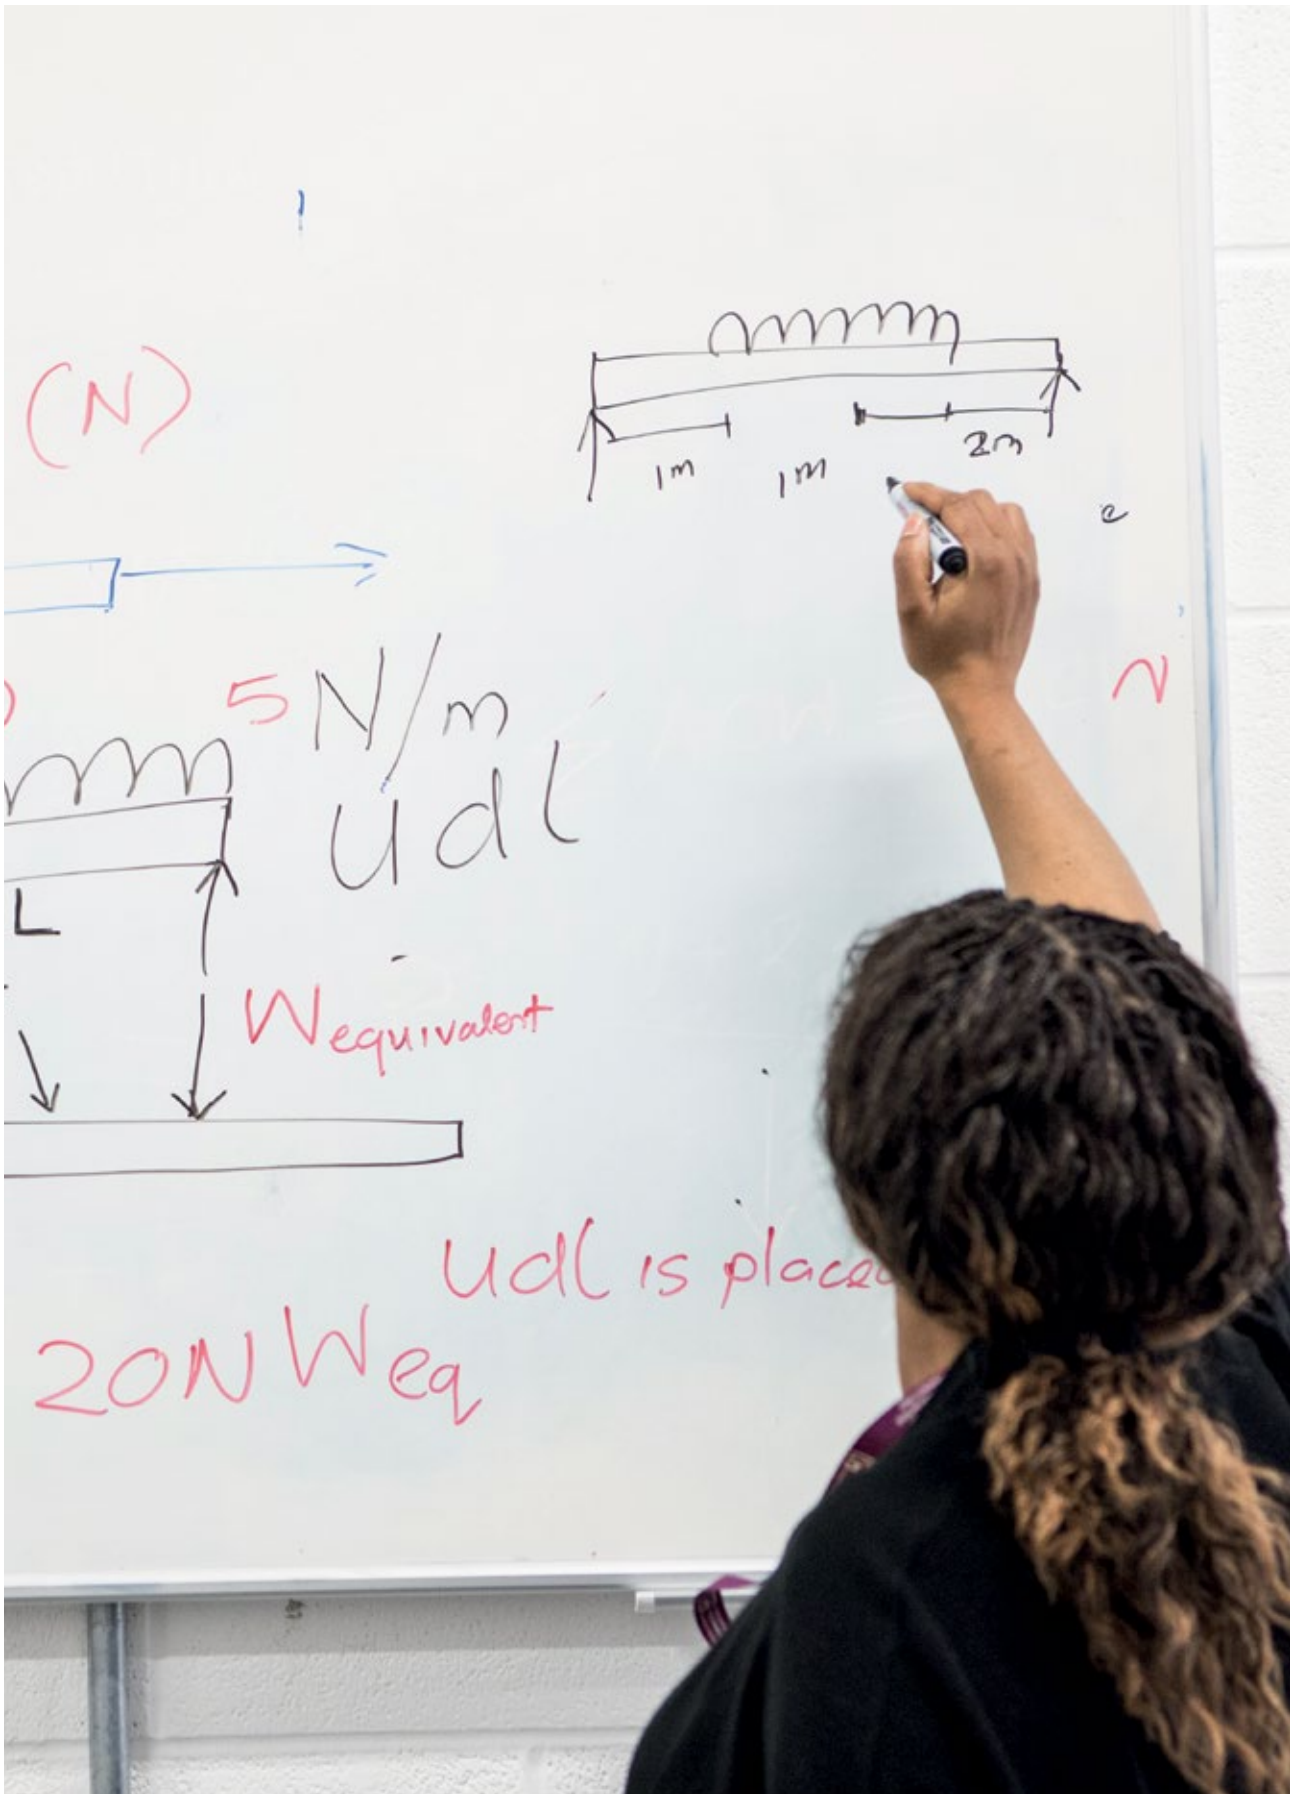 (N)
1m 1m 2m
e
N
5 N/m
udl
L
Wequivalent
udl is placed
20N Weq